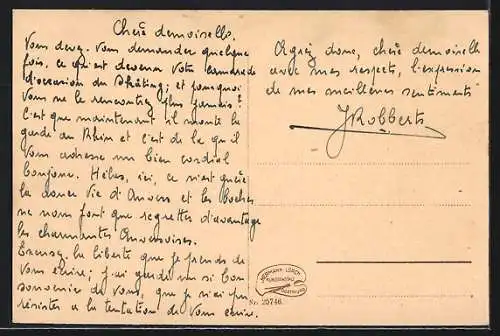 Chère demoiselle,
Vous devez vous demander quelque
fois, ce qu'est devenu votre camarade
d'occasion du Skating; et pourquoi
vous ne le rencontrez plus jamais?
C'est que maintenant il monte la
garde au Rhin et c'est de là qu'il
vous adresse un bien cordial
bonjour. Hélas, ici, ce n'est guère
la douce vie d'Anvers et les boches
ne nous font que regretter d'avantage
les charmantes Anversoises.
Excusez la liberté que je prends de
vous écrire; j'ai gardé un si bon
souvenir de vous, que je n'ai pu
résister a la tentation de vous écrire.
Agréez donc, chère demoiselle
avec mes respects, l'expression
de mes meilleurs sentiments
J Robberts
HERMANN LORCH
KUNSTANSTALT
DORTMUND
Nr. 25746.